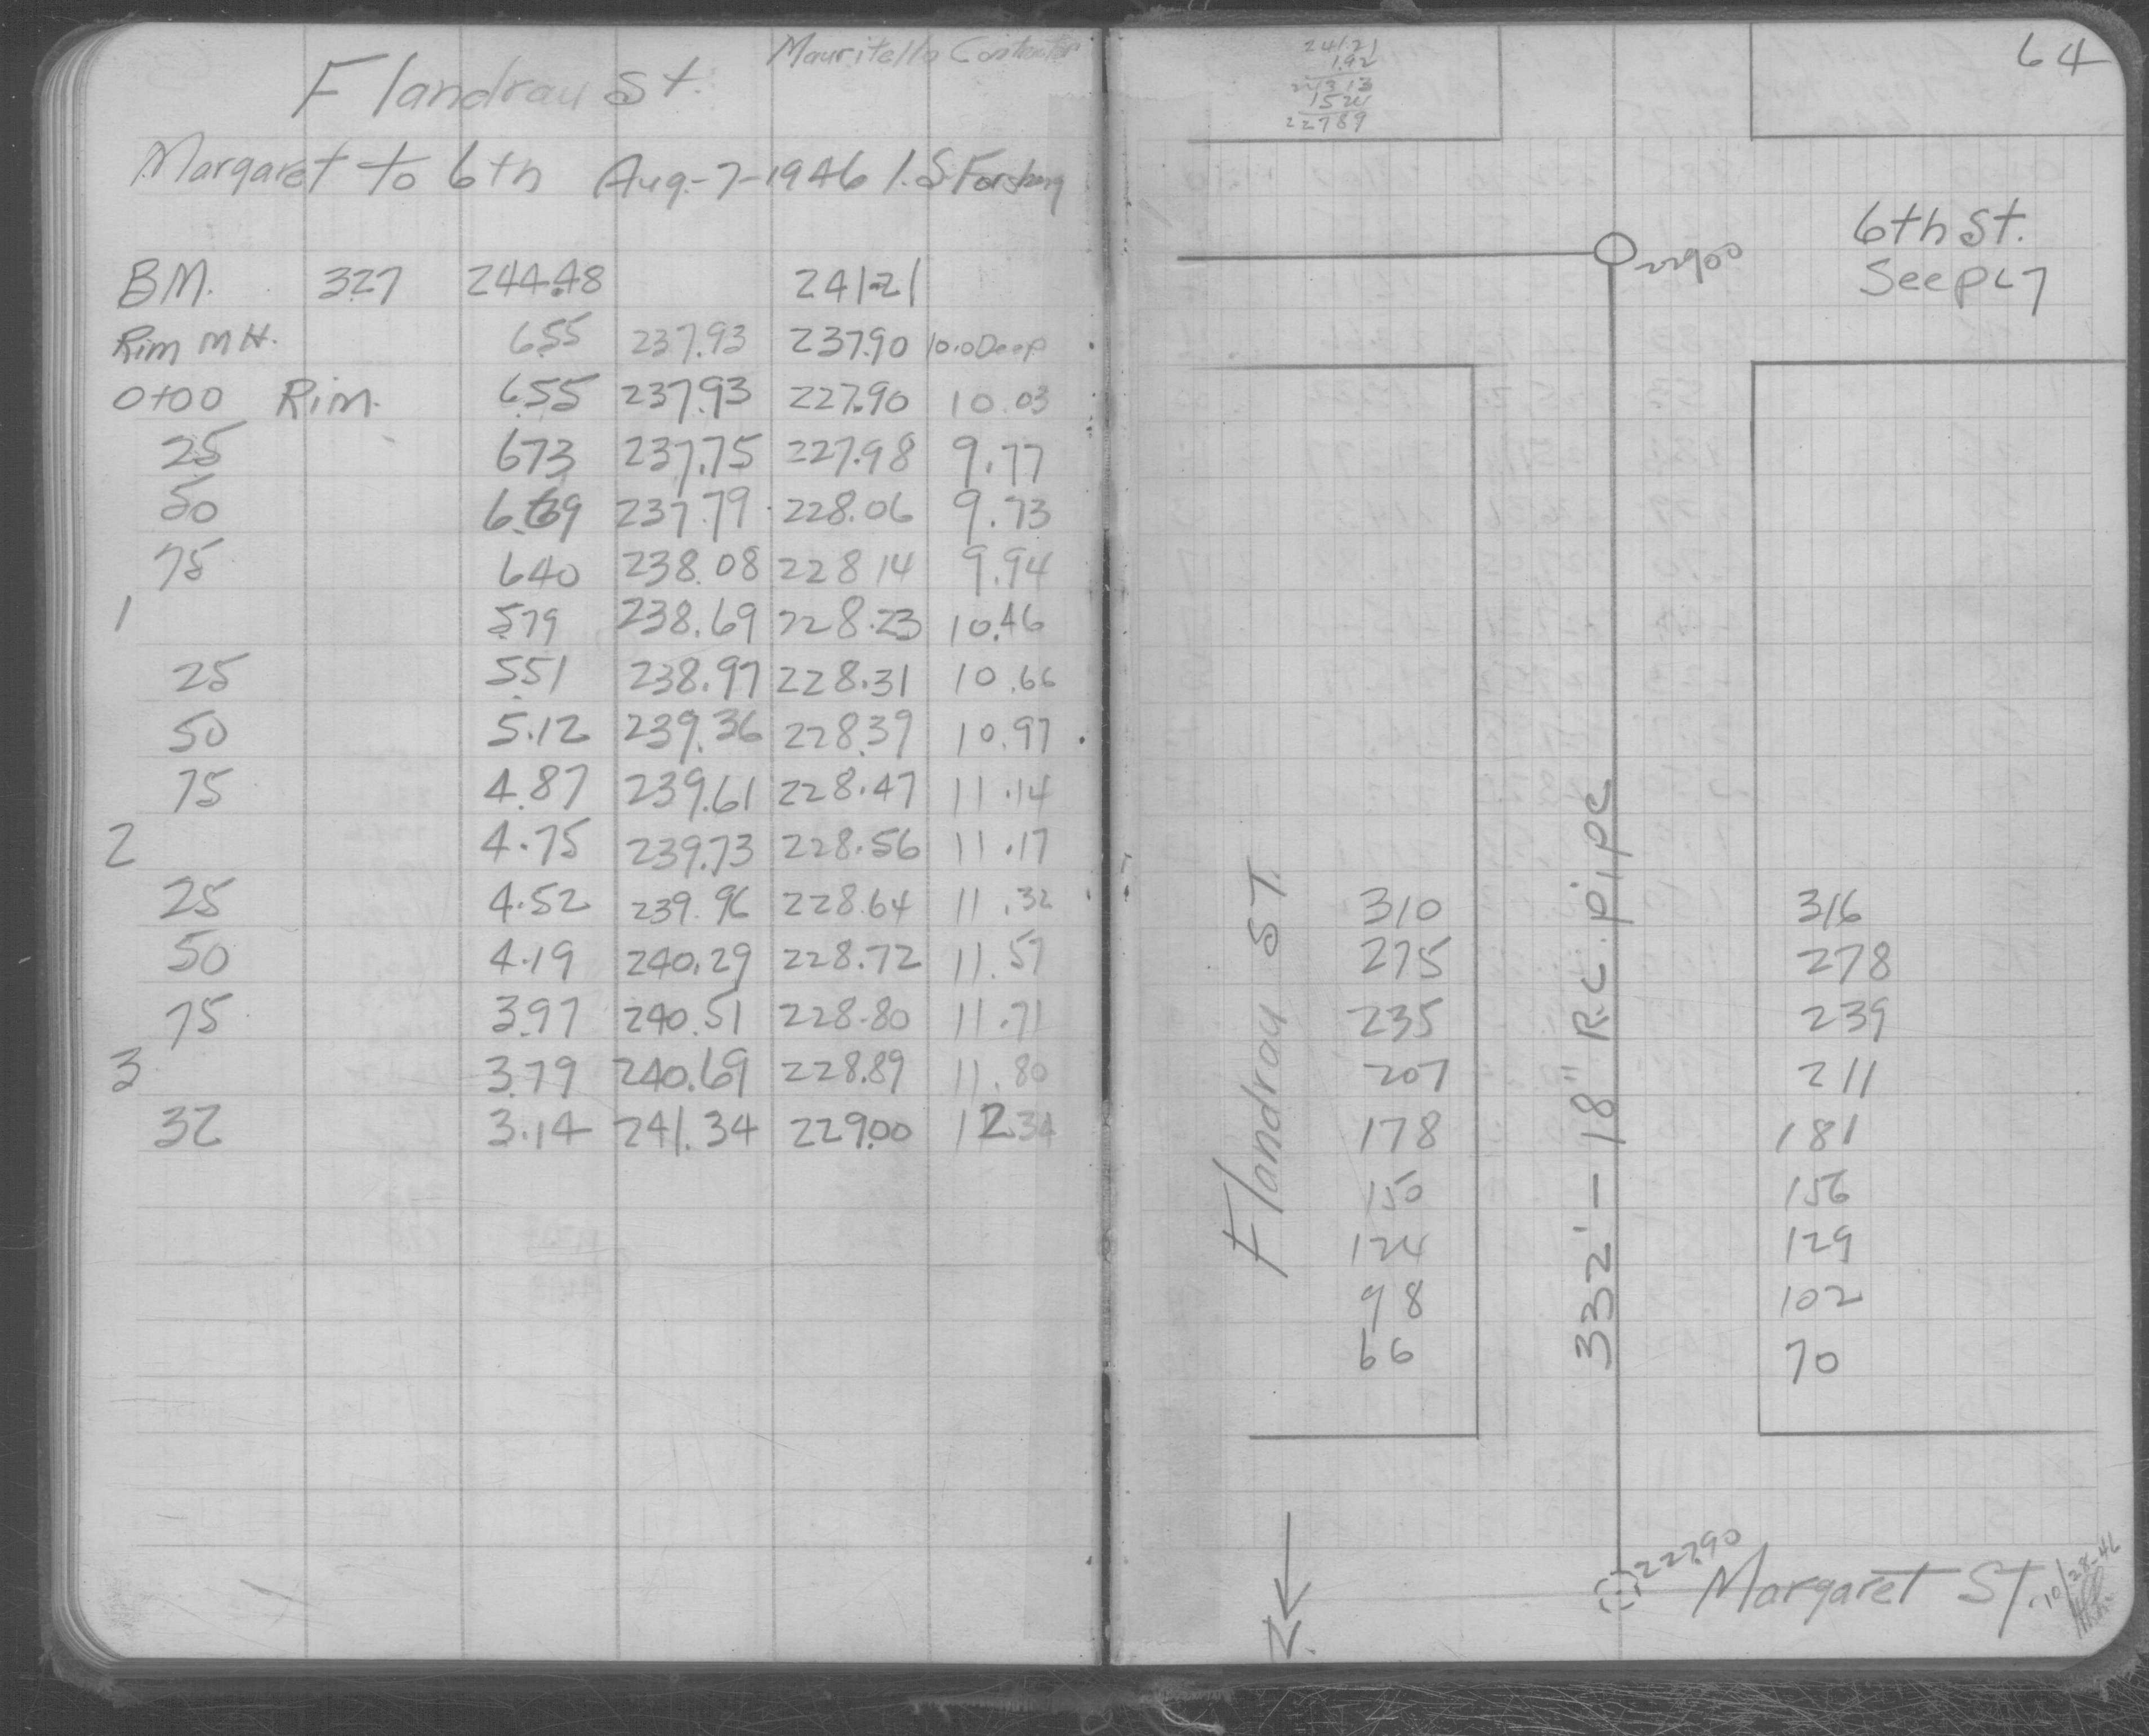 Mauritello Contractor
Flandrau St.
Margaret to 6th Aug-7-1946 I.S.Forsberg
BM. 327 244.48 241.21
Rim MH. 6.55 237.93 237.90 10.0 Deep
0+00 Rim. 6.55 237.93 227.90 10.03
25 673 237.75 227.98 9.77
50 6.69 237.79 228.06 9.73
75 640 238.08 228 14 9.94
1 579 238.69 228.23 10.46
25 551 238.97 228.31 10.66
50 5.12 239.36 228.39 10.97
75 4.87 239.61 228.47 11.14
2 4.75 239.73 228.56 11.17
25 4.52 239.96 228.64 11.32
50 4.19 240.29 228.72 11.57
75 3.97 240.51 228.80 11.71
3 3.79 240.69 228.89 11.80
32 3.14 241.34 229.00 12.34
64
241.21
1.92
24313
1524
22789
6th St.
22900
See p 67
Flandrau ST.
332' - 18" R.C. pipe
310 316
275 278
235 239
207 211
178 181
150 156
124 129
98 102
66 70
22790
Margaret ST.
10/28-46